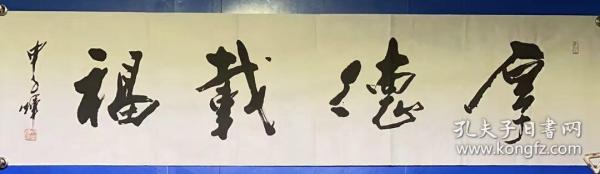 厚德载福
申万辉
孔夫子旧书网
www.kongfz.com